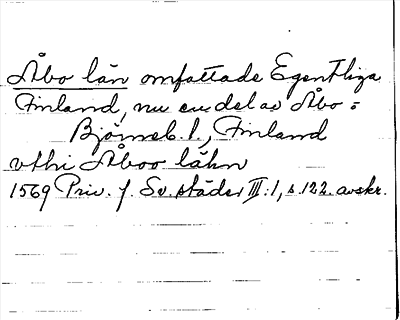 Åbo län omfattade Egentliga
Finland, nu en del av Åbo-
Björneb. l., Finland
vthi Åboo lähn
1569 Priv. f. Sv. städer III:1, s. 122. avskr.